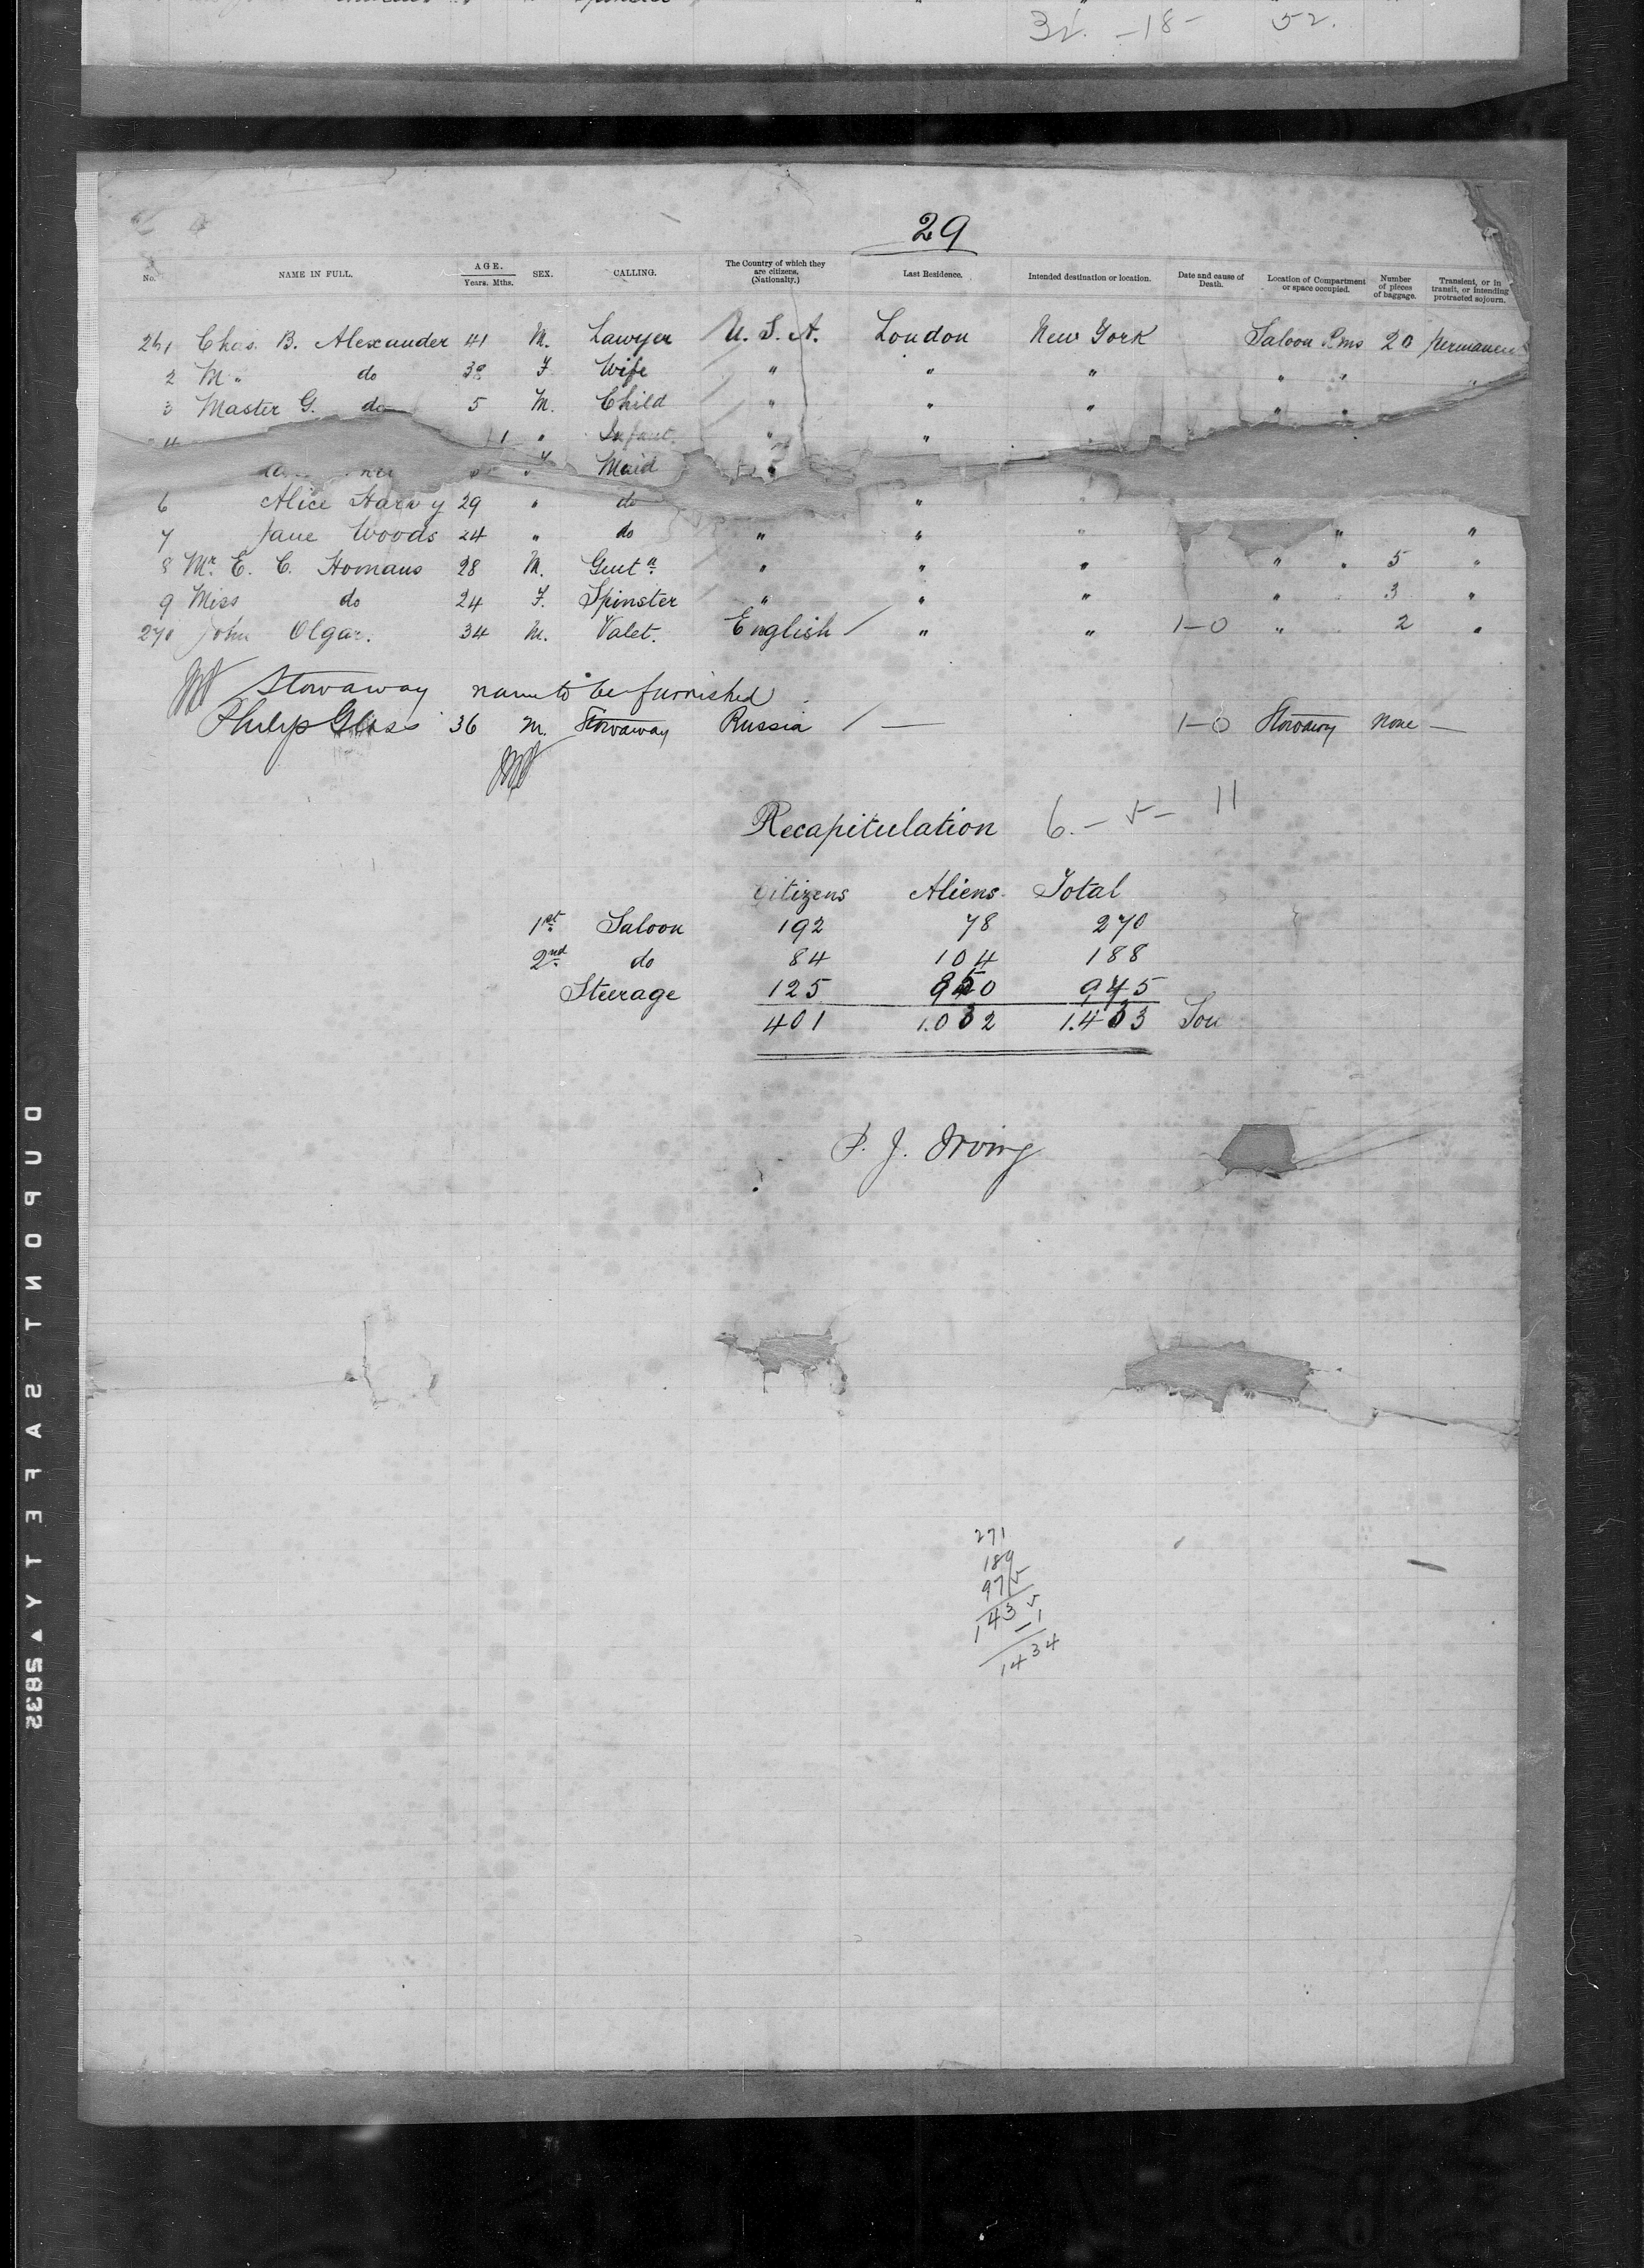 31. -18- 52.
29
No. NAME IN FULL. AGE. Years. Mths. SEX. CALLING. The Country of which they are citizens. (Nationalty.) Last Residence. Intended destination or location. Date and cause of Death. Location of Compartment or space occupied. Number of pieces of baggage. Transient, or in transit, or intending protracted sojourn.
261 Chas. B. Alexander 41 M. Lawyer U.S.A. London New York Saloon Rms 20 Permanent
2 M " do 38 F. Wife " " " " " "
3 Master G. do 5 M. Child " " " " "
4 1 " Infant. " "
Maid
6 Alice Harvy 29 " do "
7 Jane Woods 24 " do " " " " "
8 Mr. E. C. Homans 28 M. Gentn. " " " " " 5 "
9 Miss do 24 F. Spinster " " " " 3 "
270 John Olgar. 34 M. Valet. English / " " 1-0 " 2 "
Stowaway name to be furnished
Philip Glass 36 M. Stowaway Russia / — 1-0 Stowaway None —
Recapitulation 6.- 5- 11
Citizens Aliens. Total
1st. Saloon 192 78 270
2nd. do 84 104 188
Steerage 125 945
401 1.032 1.433
P. J. Irving
271
189
975
1435
-1
1434
DUPONT SAFETY ▲ 5832